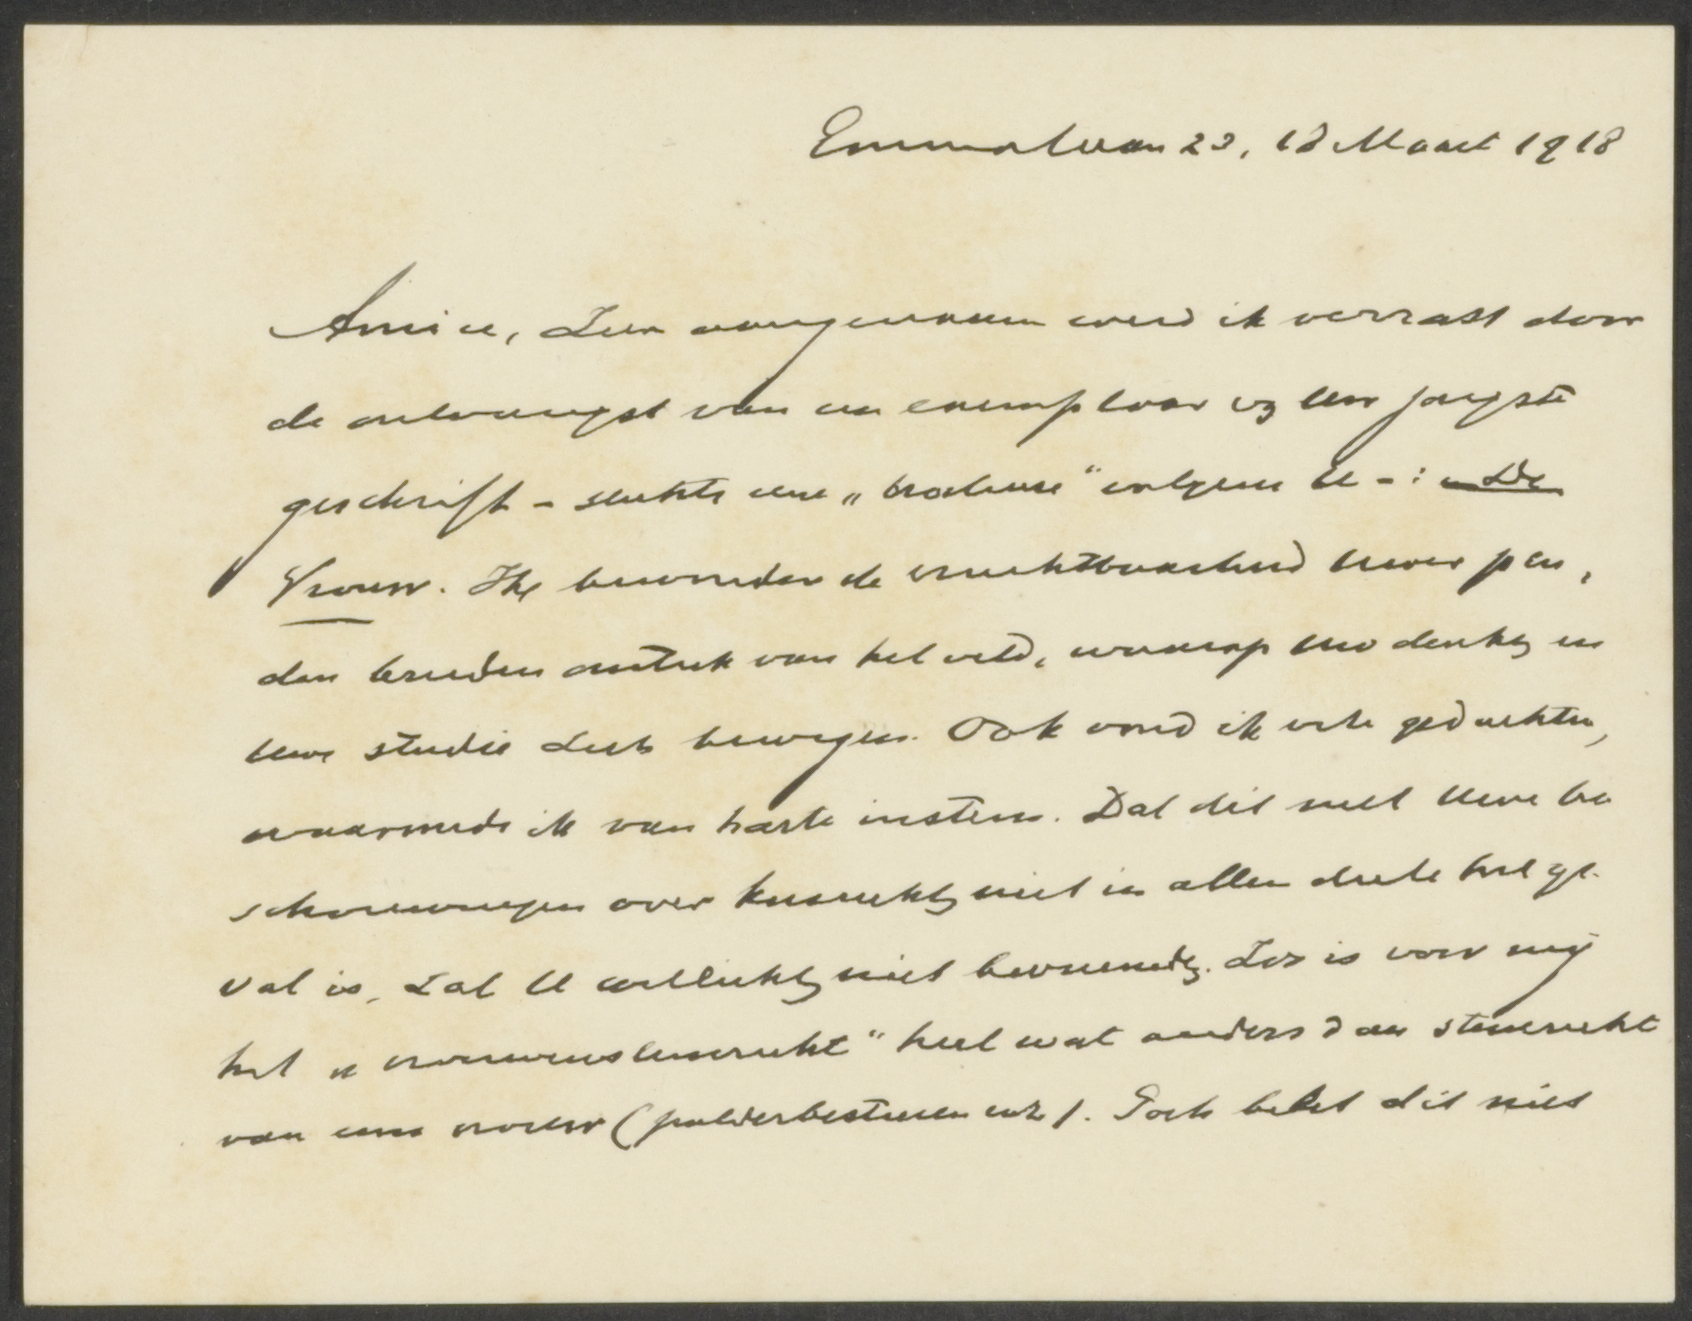 Emmalaan 23, 18 Maart 1918
Amice, Zeer aangenaam werd ik verrast door
de ontvangst van een exemplaar v/ Uw jongste
geschrift - slechts eene „brochure" volgens U - : De
Vrouw. Ik bewonder de vruchtbaarheid Uwer pen,
den breeden omtrek van het veld, waarop Uw denken en
Uwe studie zich bewegen. Ook vond ik vele gedachten,
waarmede ik van harte instem. Dat dit met Uwe be
schouwingen over kiesrecht niet in allen deele het ge-
val is, zal U wellicht niet bevreemden. Zoo is voor mij
het „vrouwenstemrecht" heel wat anders dan stemrecht
van eene vrouw (polderbesturen enz). Toch belet dit niet